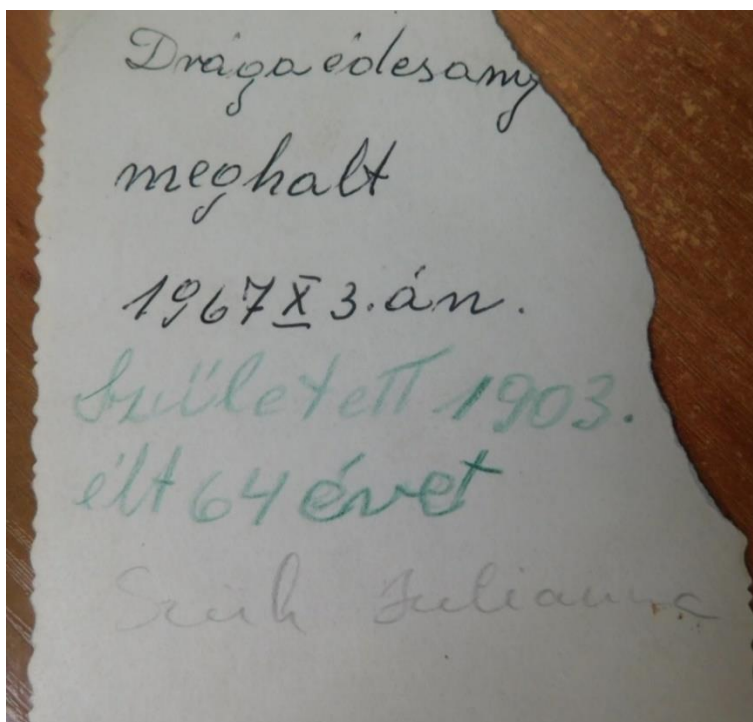 Drága édesany
meghalt
1967 X 3.án.
Született 1903.
élt 64 évet
Szűk Julianna